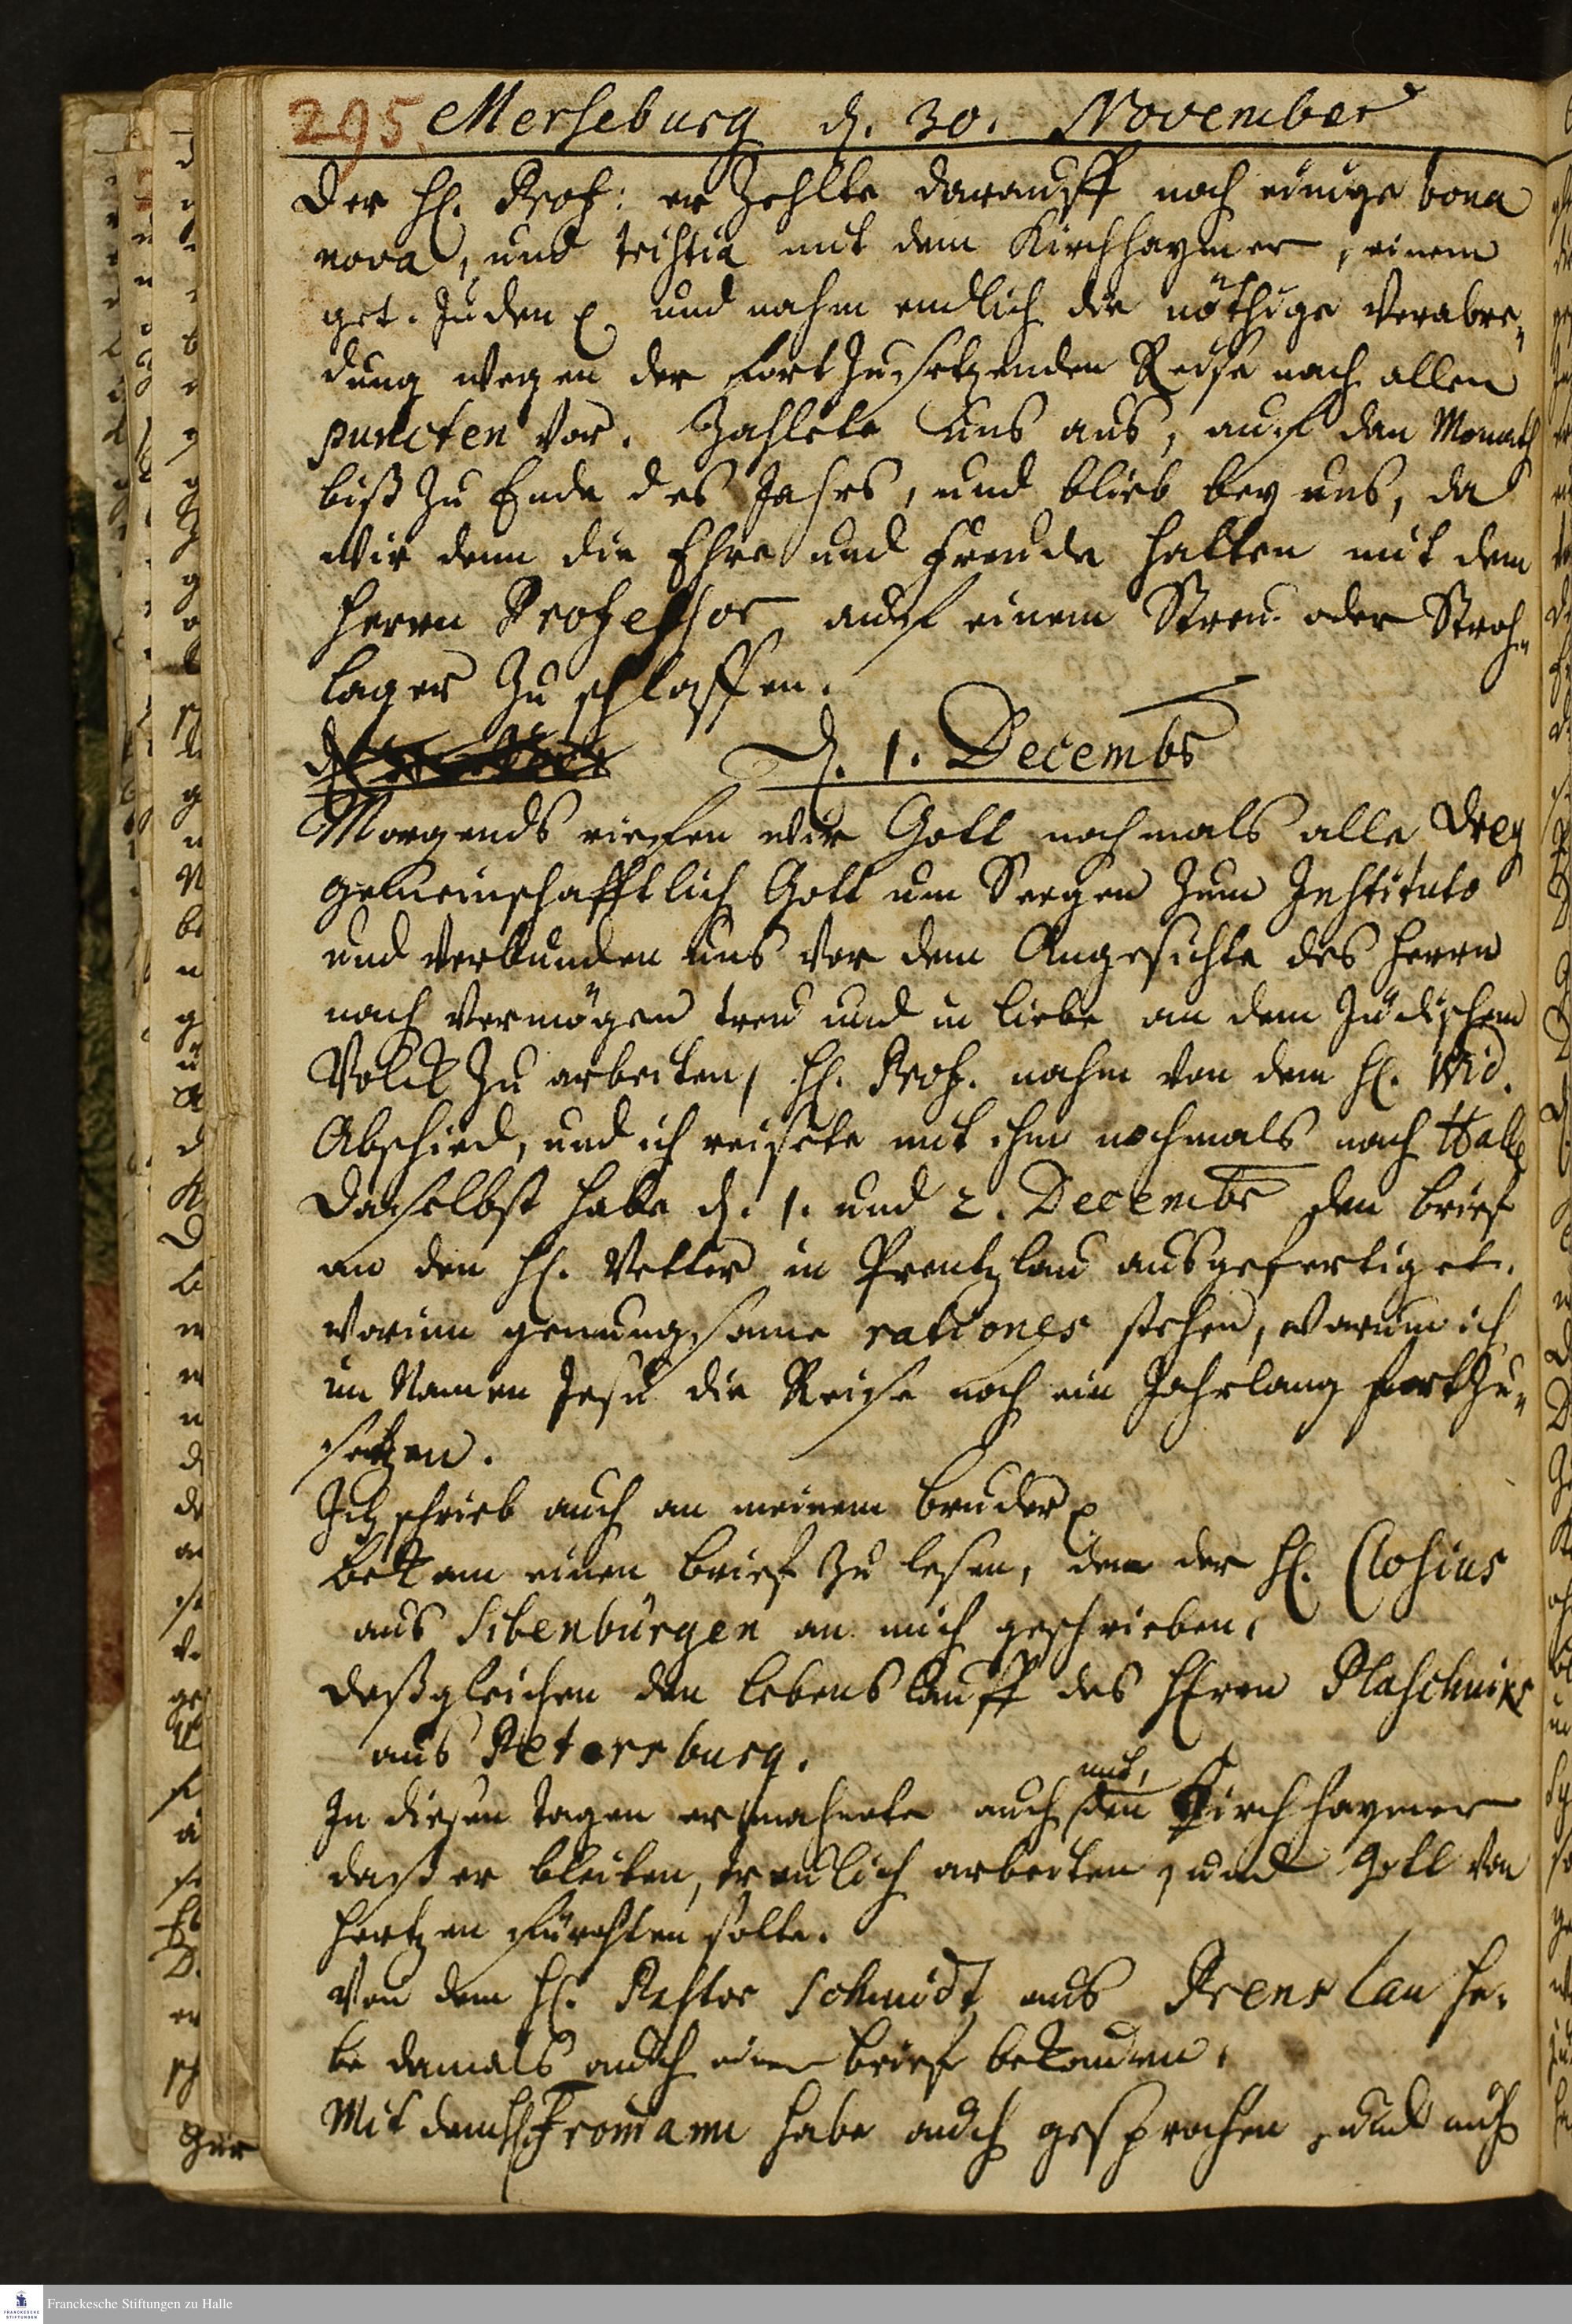 295. Merseburg d. 30. November
Der H. Prof: erzehlte darauff noch einige bona
nova, und tristia mit dem Kirchhaymer, einem
get. Juden und nahm endlich die nöthige Verabre-
dung wegen der fortzusetzenden Reise nach allen
puncten vor. Zahlete uns aus, auf den Monath
biß zu Ende des Jahrs, und blieb bey uns, da
wir denn die Ehre und Freude hatten mit dem
Herrn Professor auf einem Streu oder Stroh-
lager zu schlaffen.
D. 1. Decembr
Morgends rieffen wir Gott nochmals alle drey
gemeinschafftlich Gott um Seegen zum Instituto
und verbunden uns vor dem Angesichte des Herrn
nach Vermögen treu und in Liebe an dem Jüdischen
Volck zu arbeiten, H. Prof. nahm von dem H. Wid.
Abschied, und ich reisete mit ihm nochmals nach Halle
Daselbst habe d. 1. und 2. Decembr den brief
an den H. Vetter in Prentzlau ausgefertiget.
worinn genungsame rationes stehen, warum ich
im Namen Jesu die Reise noch ein Jahrlang fortzu-
setzen.
Ich schrieb auch an meinem bruder
bekam einen brief zu lesen, den der H. Closius
aus Sibenbürgen an mich geschrieben.
deßgleichen den Lebenslauff des Herrn Plaschnigs
aus Petersburg.
und,
In diesen tagen ermahnete auch den Kirchhaymer
daß er bleiben, treulich arbeiten, und Gott von
Hertzen fürchten solte.
Von dem H. Pastor Schmidt aus Prenslau ha-
be damals auch einen brief bekommen.
Mit dem H. Fromann habe auch gesprochen, und auch
Zur
Franckesche Stiftungen zu Halle